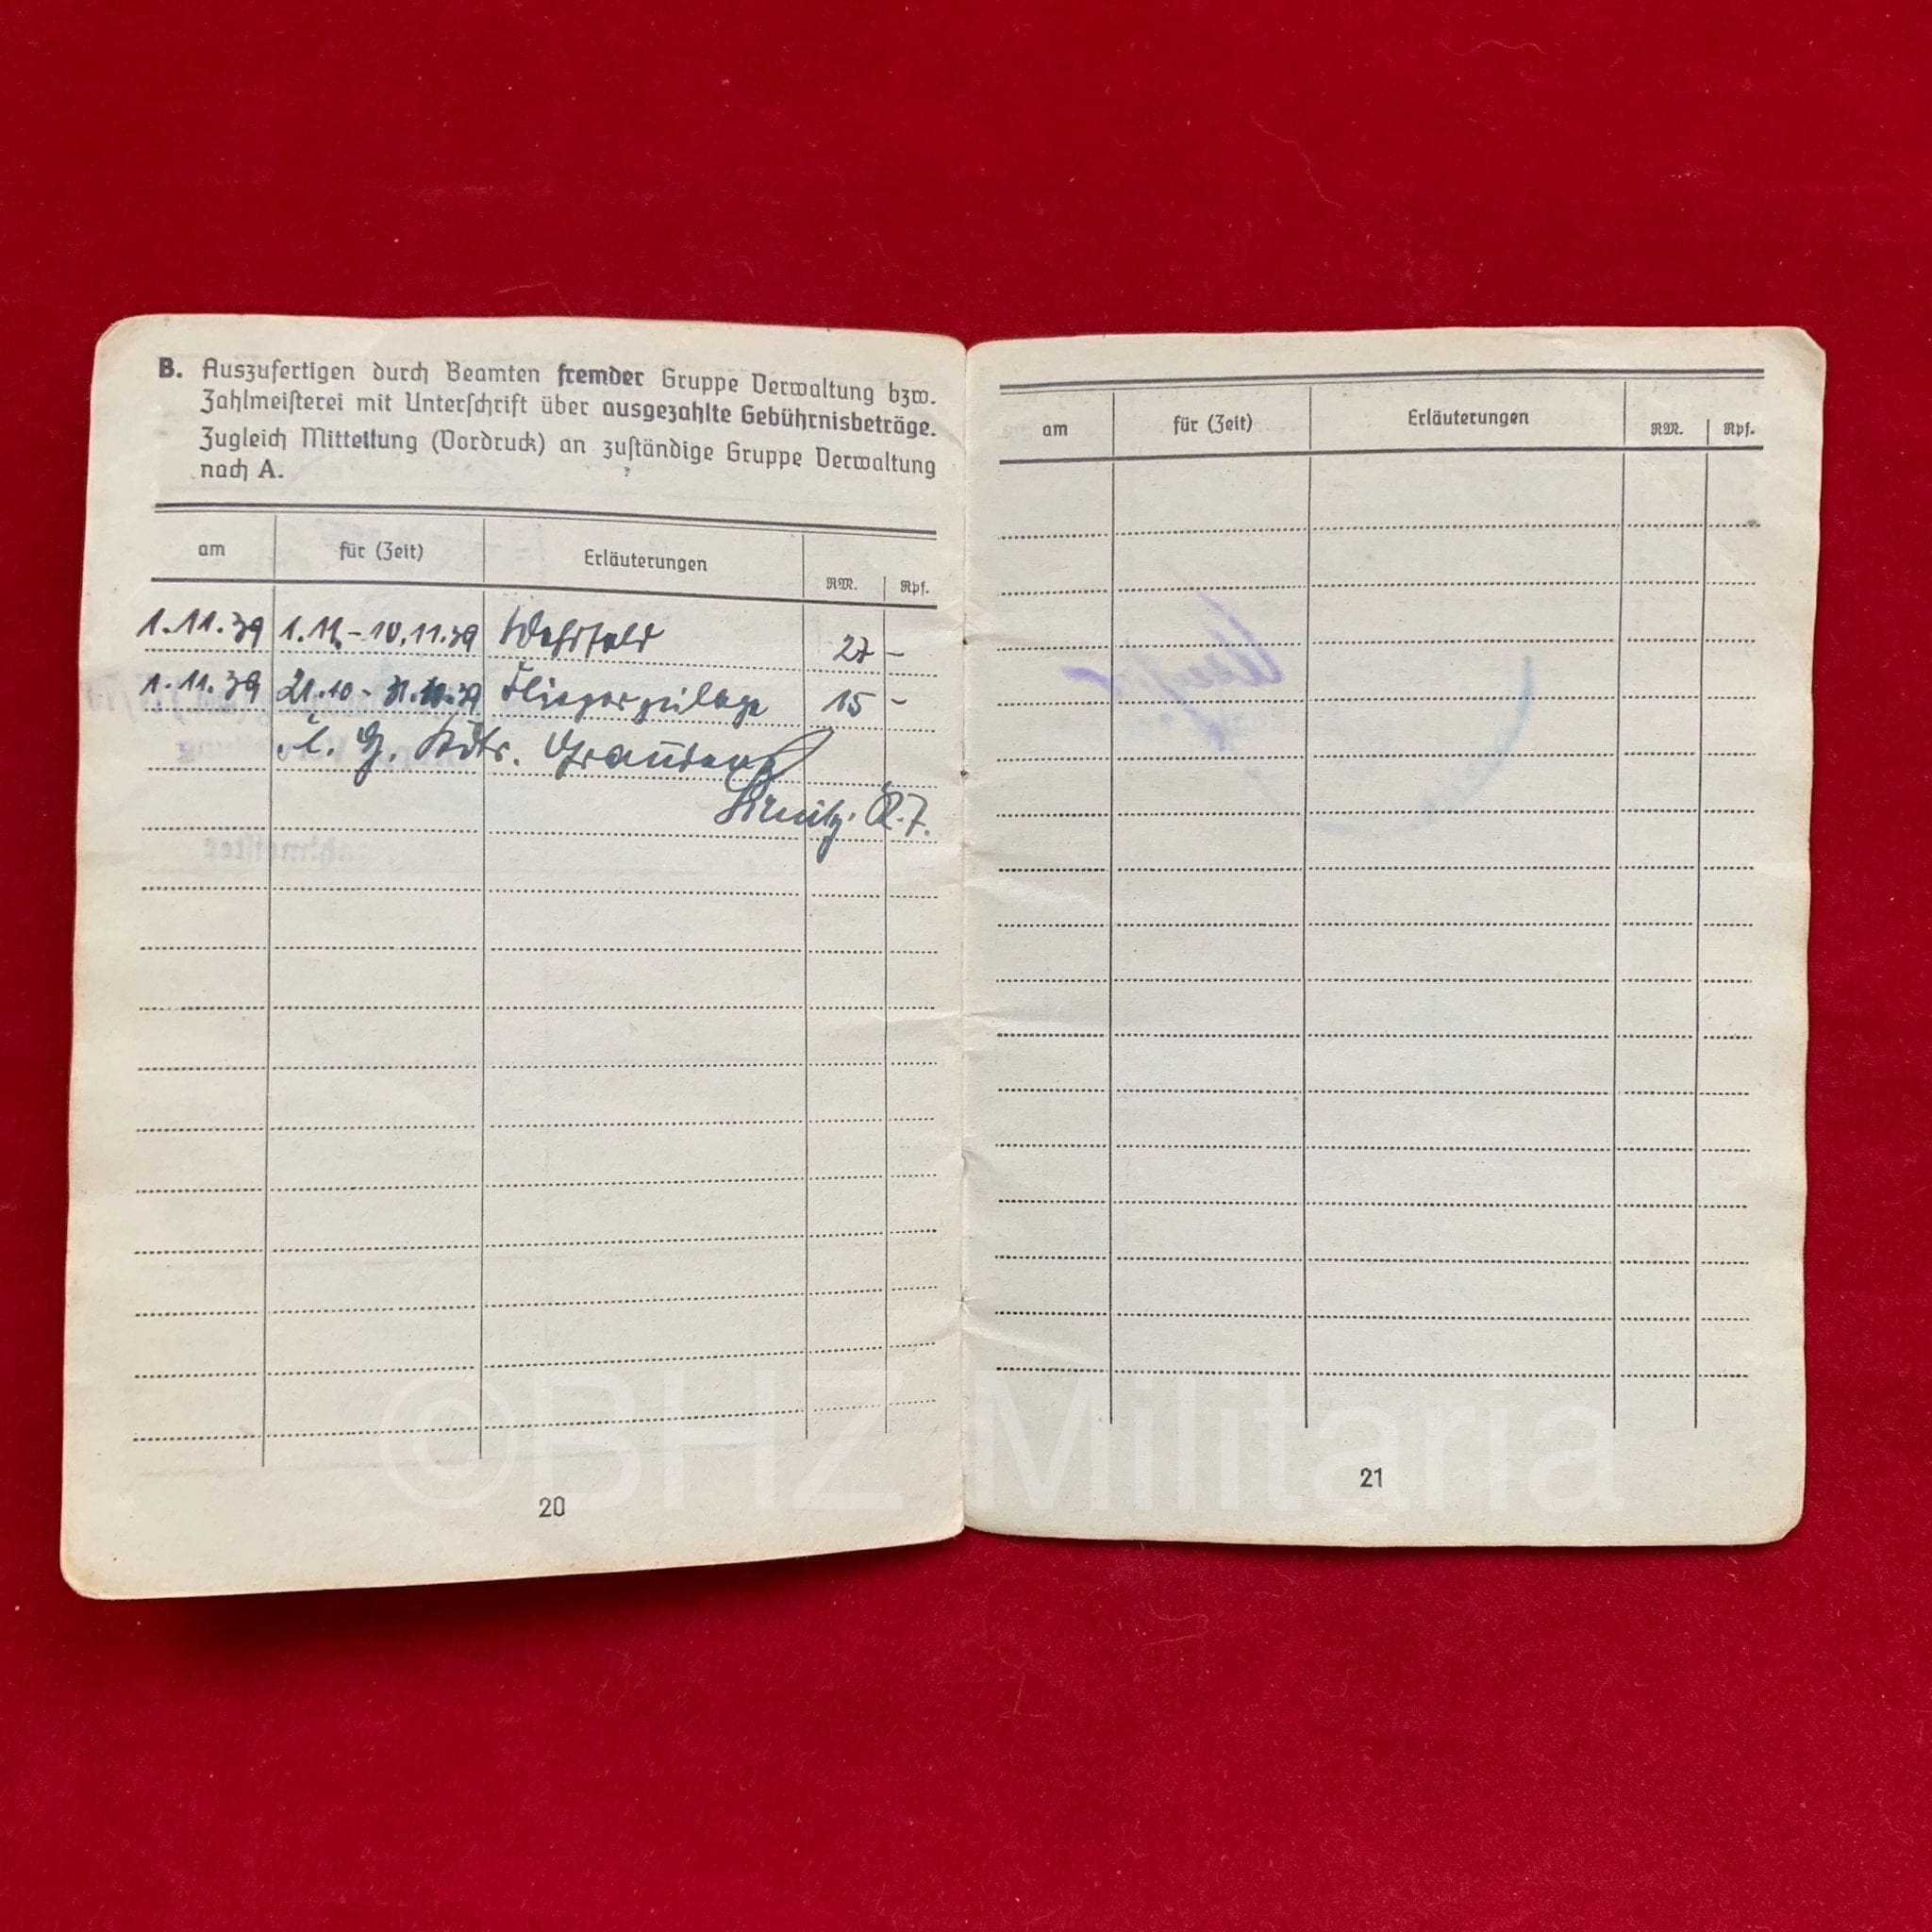 B. Auszufertigen durch Beamten fremder Gruppe Verwaltung bzw.
Zahlmeisterei mit Unterschrift über ausgezahlte Gebührnisbeträge.
Zugleich Mitteilung (Vordruck) an zuständige Gruppe Verwaltung
nach A.
am für (Zeit) Erläuterungen RM. Rpf.
1.11.39 1.11.-10.11.39 Wehrsold 27 -
1.11.39 21.10-31.10.39 Fliegerzulage 15 -
Kdtr. Graudenz
20
am für (Zeit) Erläuterungen RM. Rpf.
21
©BHZ Militaria